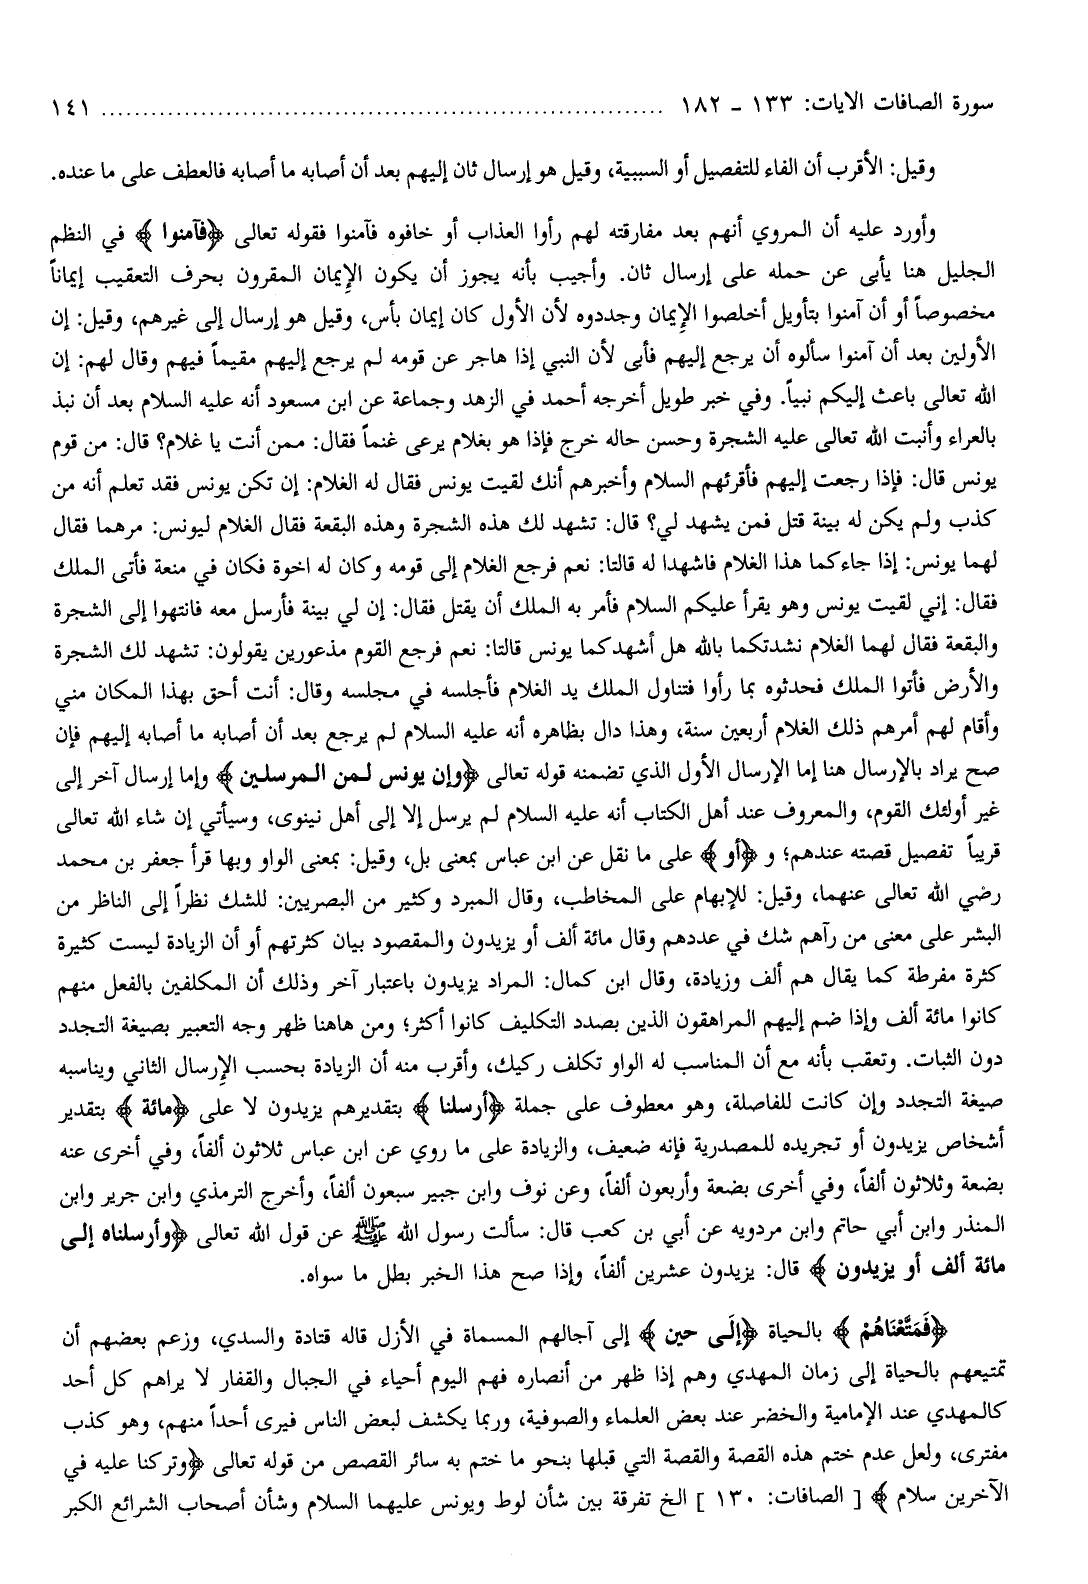 سورة الصافات الايات: ١٣٣ - ١٨٢ ................................................................ ١٤١
وقيل: الأقرب أن الفاء للتفصيل أو السببية، وقيل هو إرسال ثان إليهم بعد أن أصابه ما أصابه فالعطف على ما عنده.
وأورد عليه أن المروي أنهم بعد مفارقته لهم رأوا العذاب أو خافوه فآمنوا فقوله تعالى ﴿فآمنوا﴾ في النظم
الجليل هنا يأبى عن حمله على إرسال ثان. وأجيب بأنه يجوز أن يكون الإيمان المقرون بحرف التعقيب إيماناً
مخصوصاً أو أن آمنوا بتأويل أخلصوا الإيمان وجددوه لأن الأول كان إيمان بأس، وقيل هو إرسال إلى غيرهم، وقيل: إن
الأولين بعد أن آمنوا سألوه أن يرجع إليهم فأبى لأن النبي إذا هاجر عن قومه لم يرجع إليهم مقيماً فيهم وقال لهم: إن
الله تعالى باعث إليكم نبياً. وفي خبر طويل أخرجه أحمد في الزهد وجماعة عن ابن مسعود أنه عليه السلام بعد أن نبذ
بالعراء وأنبت الله تعالى عليه الشجرة وحسن حاله خرج فإذا هو بغلام يرعى غنماً فقال: ممن أنت يا غلام؟ قال: من قوم
يونس قال: فإذا رجعت إليهم فأقرئهم السلام وأخبرهم أنك لقيت يونس فقال له الغلام: إن تكن يونس فقد تعلم أنه من
كذب ولم يكن له بينة قتل فمن يشهد لي؟ قال: تشهد لك هذه الشجرة وهذه البقعة فقال الغلام ليونس: مرهما فقال
لهما يونس: إذا جاءكما هذا الغلام فاشهدا له قالتا: نعم فرجع الغلام إلى قومه وكان له اخوة فكان في منعة فأتى الملك
فقال: إني لقيت يونس وهو يقرأ عليكم السلام فأمر به الملك أن يقتل فقال: إن لي بينة فأرسل معه فانتهوا إلى الشجرة
والبقعة فقال لهما الغلام نشدتكما بالله هل أشهدكما يونس قالتا: نعم فرجع القوم مذعورين يقولون: تشهد لك الشجرة
والأرض فأتوا الملك فحدثوه بما رأوا فتناول الملك يد الغلام فأجلسه في مجلسه وقال: أنت أحق بهذا المكان مني
وأقام لهم أمرهم ذلك الغلام أربعين سنة، وهذا دال بظاهره أنه عليه السلام لم يرجع بعد أن أصابه ما أصابه إليهم فإن
صح يراد بالإرسال هنا إما الإرسال الأول الذي تضمنه قوله تعالى ﴿وإن يونس لمن المرسلين﴾ وإما إرسال آخر إلى
غير أولئك القوم، والمعروف عند أهل الكتاب أنه عليه السلام لم يرسل إلا إلى أهل نينوى، وسيأتي إن شاء الله تعالى
قريباً تفصيل قصته عندهم؛ و ﴿أو﴾ على ما نقل عن ابن عباس بمعنى بل، وقيل: بمعنى الواو وبها قرأ جعفر بن محمد
رضي الله تعالى عنهما، وقيل: للإبهام على المخاطب، وقال المبرد وكثير من البصريين: للشك نظراً إلى الناظر من
البشر على معنى من رآهم شك في عددهم وقال مائة ألف أو يزيدون والمقصود بيان كثرتهم أو أن الزيادة ليست كثيرة
كثرة مفرطة كما يقال هم ألف وزيادة، وقال ابن كمال: المراد يزيدون باعتبار آخر وذلك أن المكلفين بالفعل منهم
كانوا مائة ألف وإذا ضم إليهم المراهقون الذين بصدد التكليف كانوا أكثر؛ ومن هاهنا ظهر وجه التعبير بصيغة التجدد
دون الثبات. وتعقب بأنه مع أن المناسب له الواو تكلف ركيك، وأقرب منه أن الزيادة بحسب الإرسال الثاني ويناسبه
صيغة التجدد وإن كانت للفاصلة، وهو معطوف على جملة ﴿أرسلنا﴾ بتقديرهم يزيدون لا على ﴿مائة﴾ بتقدير
أشخاص يزيدون أو تجريده للمصدرية فإنه ضعيف، والزيادة على ما روي عن ابن عباس ثلاثون ألفاً، وفي أخرى عنه
بضعة وثلاثون ألفاً، وفي أخرى بضعة وأربعون ألفاً، وعن نوف وابن جبير سبعون ألفاً، وأخرج الترمذي وابن جرير وابن
المنذر وابن أبي حاتم وابن مردويه عن أبي بن كعب قال: سألت رسول الله ﷺ عن قول الله تعالى ﴿وأرسلناه إلى
مائة ألف أو يزيدون﴾ قال: يزيدون عشرين ألفاً، وإذا صح هذا الخبر بطل ما سواه.
﴿فَمَتَّعْنَاهُمْ﴾ بالحياة ﴿إلَى حين﴾ إلى آجالهم المسماة في الأزل قاله قتادة والسدي، وزعم بعضهم أن
تمتيعهم بالحياة إلى زمان المهدي وهم إذا ظهر من أنصاره فهم اليوم أحياء في الجبال والقفار لا يراهم كل أحد
كالمهدي عند الإمامية والخضر عند بعض العلماء والصوفية، وربما يكشف لبعض الناس فيرى أحداً منهم، وهو كذب
مفترى، ولعل عدم ختم هذه القصة والقصة التي قبلها بنحو ما ختم به سائر القصص من قوله تعالى ﴿وتركنا عليه في
الآخرين سلام﴾ [ الصافات: ١٣٠ ] الخ تفرقة بين شأن لوط ويونس عليهما السلام وشأن أصحاب الشرائع الكبر